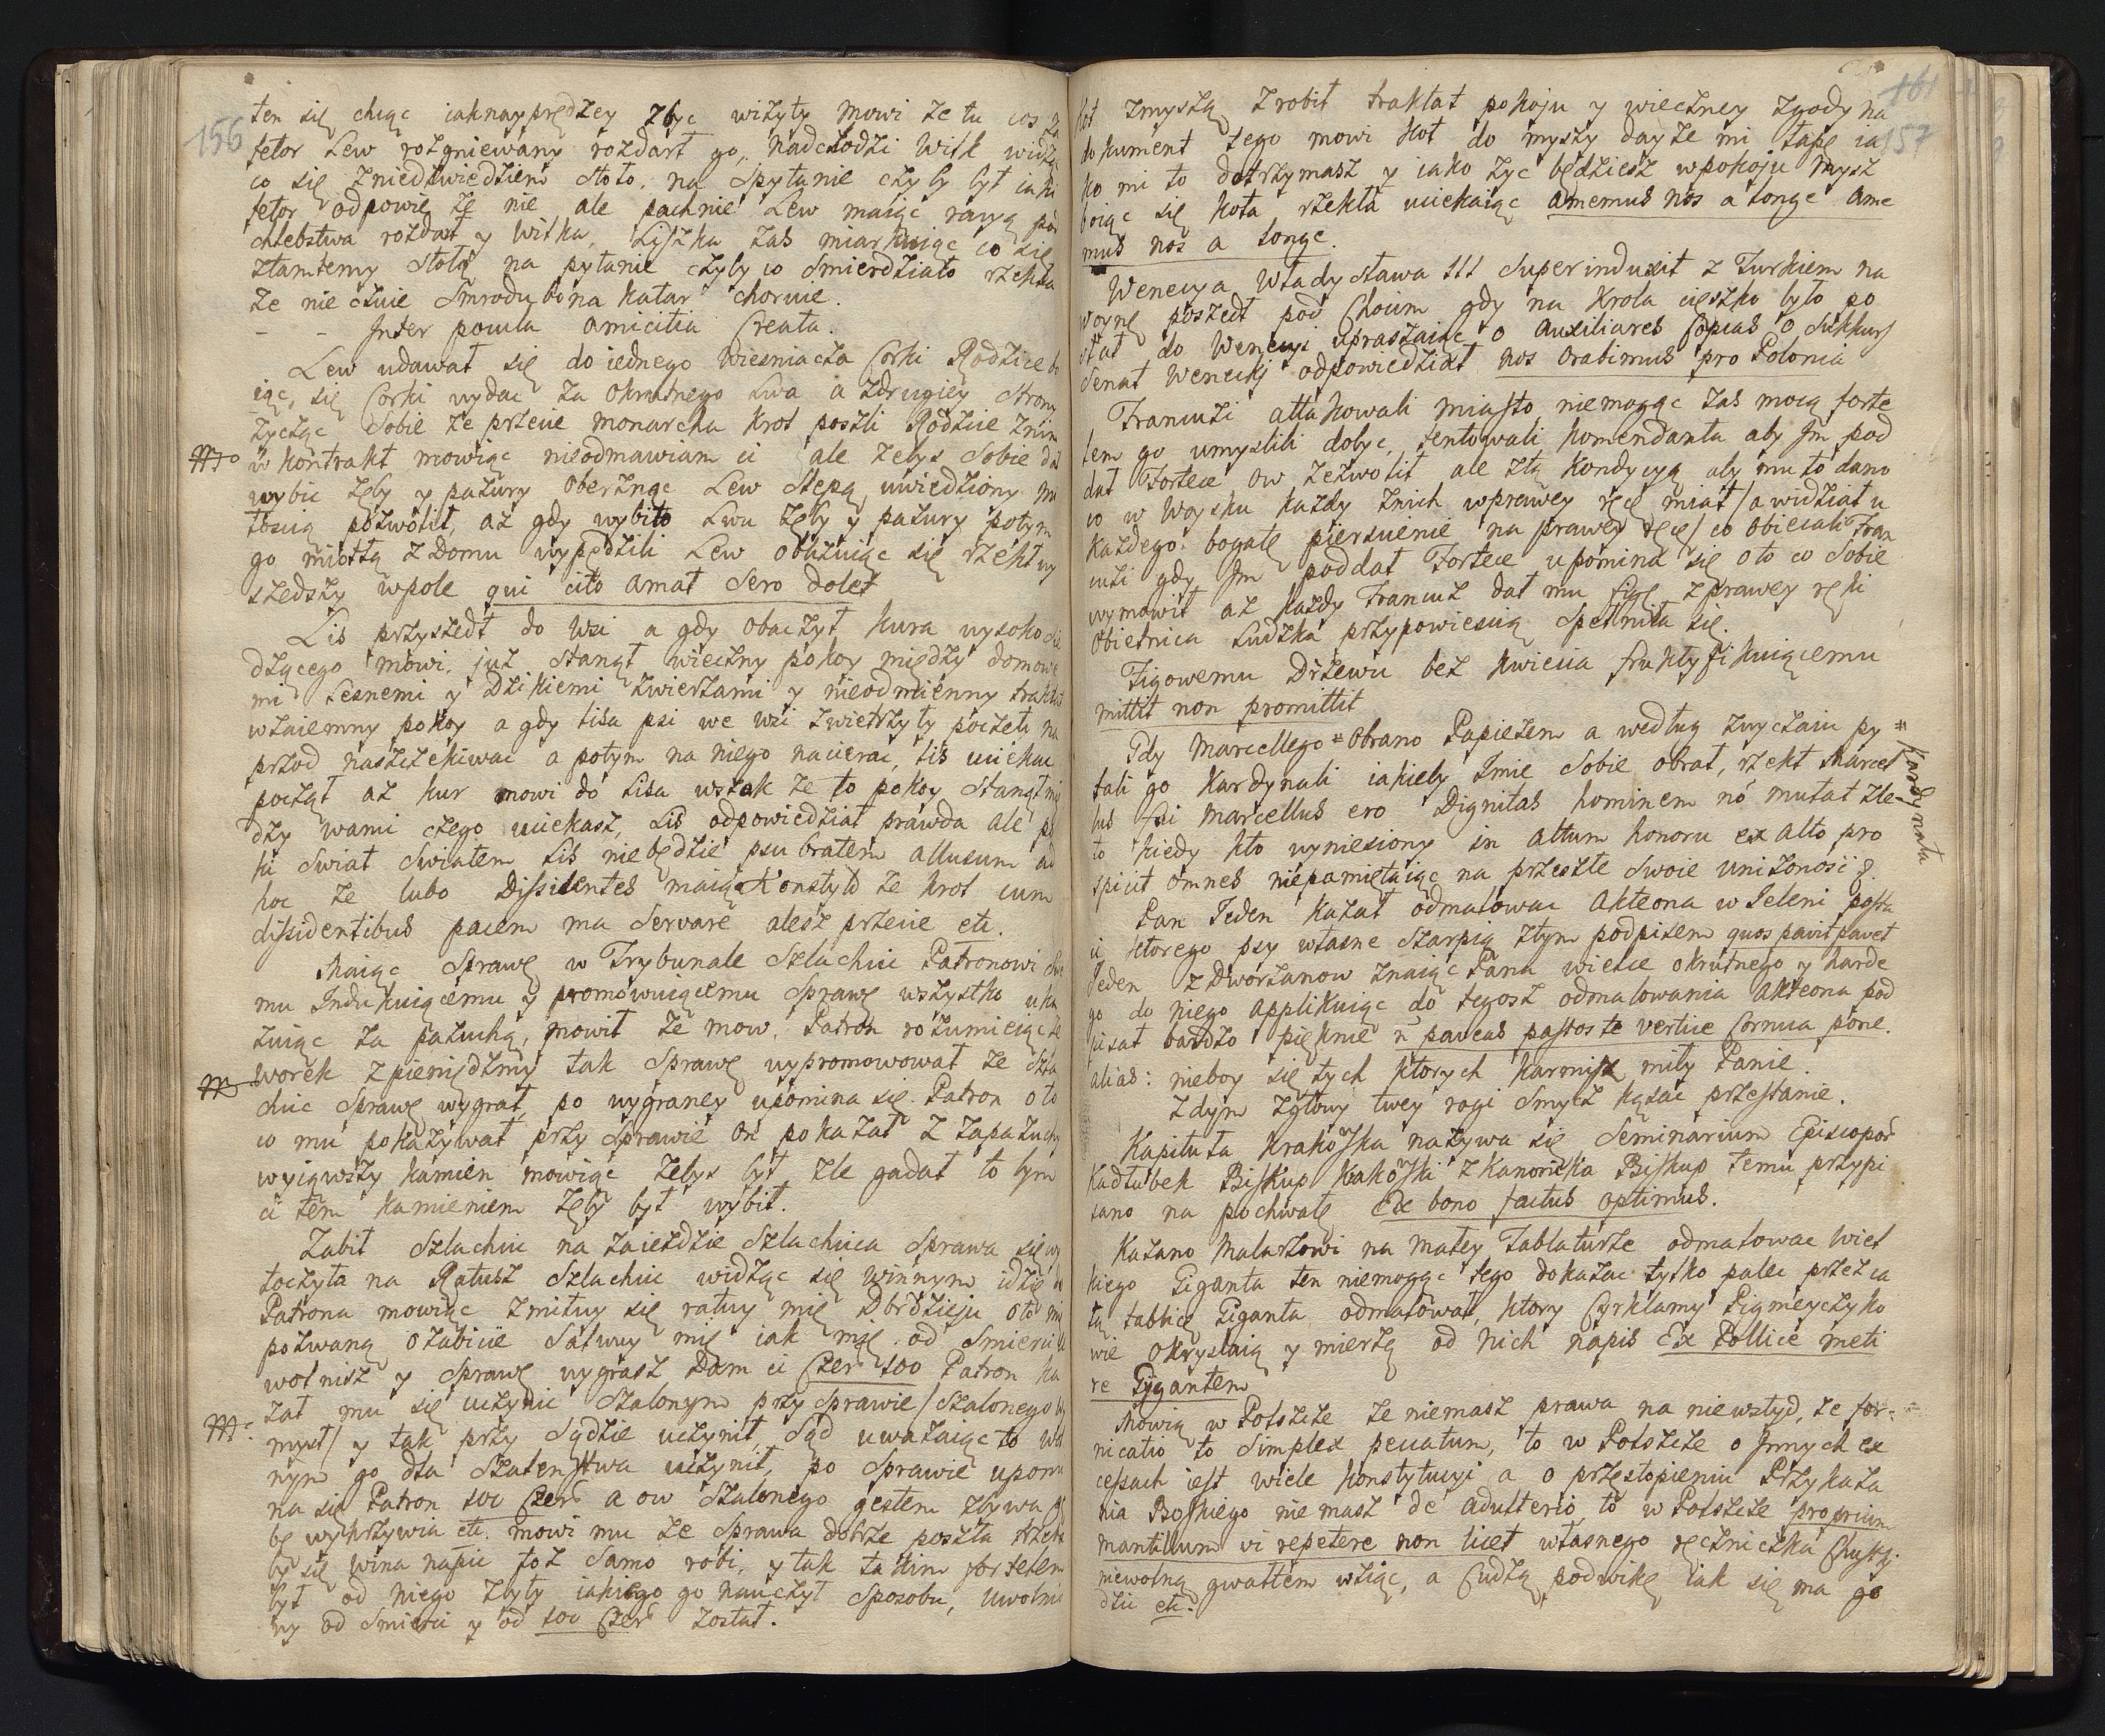 156
ten się chcąc iaknayprędzey zbyc wizyty mowi ze tu cos
fetor Lew rozgniewany rozdarł go, nadchodzi Wilk widząc
co się zniedzwiedziem stoło, na spytanie czyby był iaki
fetor odpowie ze nie ale pachnie Lew maiąc racyą po
chlebstwa rozdarł y Wilka, Liszka zas miarkuiąc co się
ztamtemy stoło na pytanie czyby co smierdziało rzekła
ze nie czuie smrodu bo na katar choruie.
- - Inter pocula amicitia Creata.
Lew udawał się do iednego wiesniacza Corki Rodzice bo
iąc się Corki wydac za okrutnego Lwa a zdrugiey strony
zycząc sobie ze przecie monarcha krol poszli Rodzice znim
w kontrakt mowiąc nieodmawiam ci ale zebys sobie dał
wybic zęby y pazury oberznąc Lew slepą uwiedziony mi
łoscią pozwolił, az gdy wybito Lwu zęby y pazury potym
go miotłą z Domu wypędzili Lew obliznuiąc się rzekł wy
szedszy wpole qui cito amat sero dolet
Lis przyszedł do Wsi a gdy obaczył kura wysoko sie
dzącego mowi, juz stanął wieczny pokoy między domowe
mi lesnemi y Dzikiemi zwierzami y nieodmienny traktat
wzaiemny pokoy a gdy lisa psi we wsi zwietrzyły poczęli na
przod naszczekiwac a potym na niego nacierac, lis uciekac
począł az kur mowi do Lisa wszak ze to pokoy stanął mię
dzy wami czego uciekasz, Lis odpowiedział prawda ale po
ki swiat swiatem Lis niebędzie psu bratem allusum ad
hoc ze lubo Dissidentes maią Konstyto ze krol cum
dissidentibus pacem ma servare alesz przecie etc.
Maiąc sprawę w Trybunale Szlachcic Patronowi swe
mu Indukuiącemu y promowuiącemu sprawę wszystko uka
zuiąc za pazuchą, mowił ze mow, Patron rozumieiąc ze
worek z pieniędzmy tak sprawę wypromowował ze szla
chcic sprawę wygrał, po wygraney upomina się Patron oto
co mu pokazywał przy sprawie on pokazał z zapazuchy
wyiąwszy kamien mowiąc zebys był zle gadał to bym
ci tem kamieniem zęby był wybił.
Zabił Szlachcic na zaiezdzie Szlachcica sprawa się wy
toczyła na Ratusz Szlachcic widząc się winnym idzie do
Patrona mowiąc zmiłuy się ratuy mię Dbrdzieju oto mię
pozwaną ozabicie salwuy mię iak mię od smierci u
wolnisz y sprawę wygrasz Dam ci Czer 100 Patron ka
zał mu się uczynic szalonym przy sprawie / szalonego
mysł / y tak przy sądzie uczynił, sąd uwazaiąc to wol
nym go dla szalenstwa uczynił, po sprawie upomi
na się Patron 100 Czer a ow szalonego gestem zbywa gę
bę wykrzywia etc. mowi mu ze sprawa dobrze poszła trzeba
by się wina napic toz samo robi, y tak takim fortelem
był od niego zbyty iakiego go nauczył sposobu, uwolnio
ny od smierci y od 100 Czer został.
161
157
kot zmyszą zrobił traktat pokoju y wieczney zgody na
dokument tego mowi Kot do myszy dayze mi łapę ia
ko mi to dotrzymasz y iako zyc będziesz wpokoju Mysz
boiąc się kota rzekła uciekaiąc amemus nos a longe ame
mus nos a longe.
Wenecya Władysława III superinduxit z Turkiem na
woynę poszedł pod Chocim gdy na krola cięszko było po
słał do Wenecyi upraszaiąc o auxiliares Copias o sukkurs
Senat Wenecki odpowiedział nos orabimus pro Polonia
Francuzi attakowali miasto niemogąc zas mocą forte
lem go umyslili dobyc, tentowali komendanta aby Im pod
dał Fortece ow zezwolił ale ztą kondycyą aby mu to dano
co w Woysku kazdy znich wprawey ręce miał / a widział u
kazdego bogate piersciecie na prawey ręce / co obiecali Fran
cuzi gdy Im poddał Fortece upomina się oto co sobie
wymowił az kazdy Francuz dał mu figę zprawey ręki
obietnica ludzka przypowiescią spełniła się.
Figowemu Drzewu bez kwiecia fruktyfikuiącemu
mittit non promittit
Gdy Marcellego # obrano Papiezem a według zwyczaiu py # Kardynała
tali go Kardynali iakieby Imie sobie obrał, rzekł Marcel
lus fui Marcellus ero Dignitas hominem nō mutat zle
to kiedy kto wyniesiony in altum honoru ex alto pro
spicit omnes niepamiętaiąc na przeszłe swoie unizonosci.
Pan Jeden kazał odmalowac Akteona w Jeleni posta
ci ktorego psy własne szarpią ztym podpisem quos pavit pavet
Jeden z Dworzanow znaiąc Pana wielce okrutnego y harde
go do niego applikuiąc do tegosz odmalowania Akteona pod
pisał bardzo pięknie ñ paveas pastos te vertice Cornua pone.
alias: nieboy się tych ktorych karmisz miły Panie.
Zdym zgłowy twey rogi smycz kąsac przestanie.
Kapituła Krakowska nazywa się Seminarium Episcopor
Kadłubek Biskup Krakowski z Kanonicka Biskup temu przypi
sano na pochwałę Ex bono factus optimus.
Kazano Malarzowi na małey Tablaturze odmalowac Wiel
kiego Giganta ten niemogąc tego dokazac tylko palec przez ca
łą tablicę Giganta odmalował, ktory Cyrklamy Pigmeyczyko
wie okryslaią y mierzą od nich napis Ex Pollice meti
re Gigantem
Mowią w Polszcze ze niemasz prawa na niewstyd, ze for-
nicatio to simplex peccatum, to w Polszcze o Innych ex
cessach iest wiele konstytucyi a o przestopieniu Przykaza
nia Boskiego niemasz de adulterio, to w Polszcze proprium
mantilium vi repetere non licet własnego ręczniczka Chustki
niewolną gwałtem wziąc, a Cudzą podwikę iak się ma go
dzic etc.